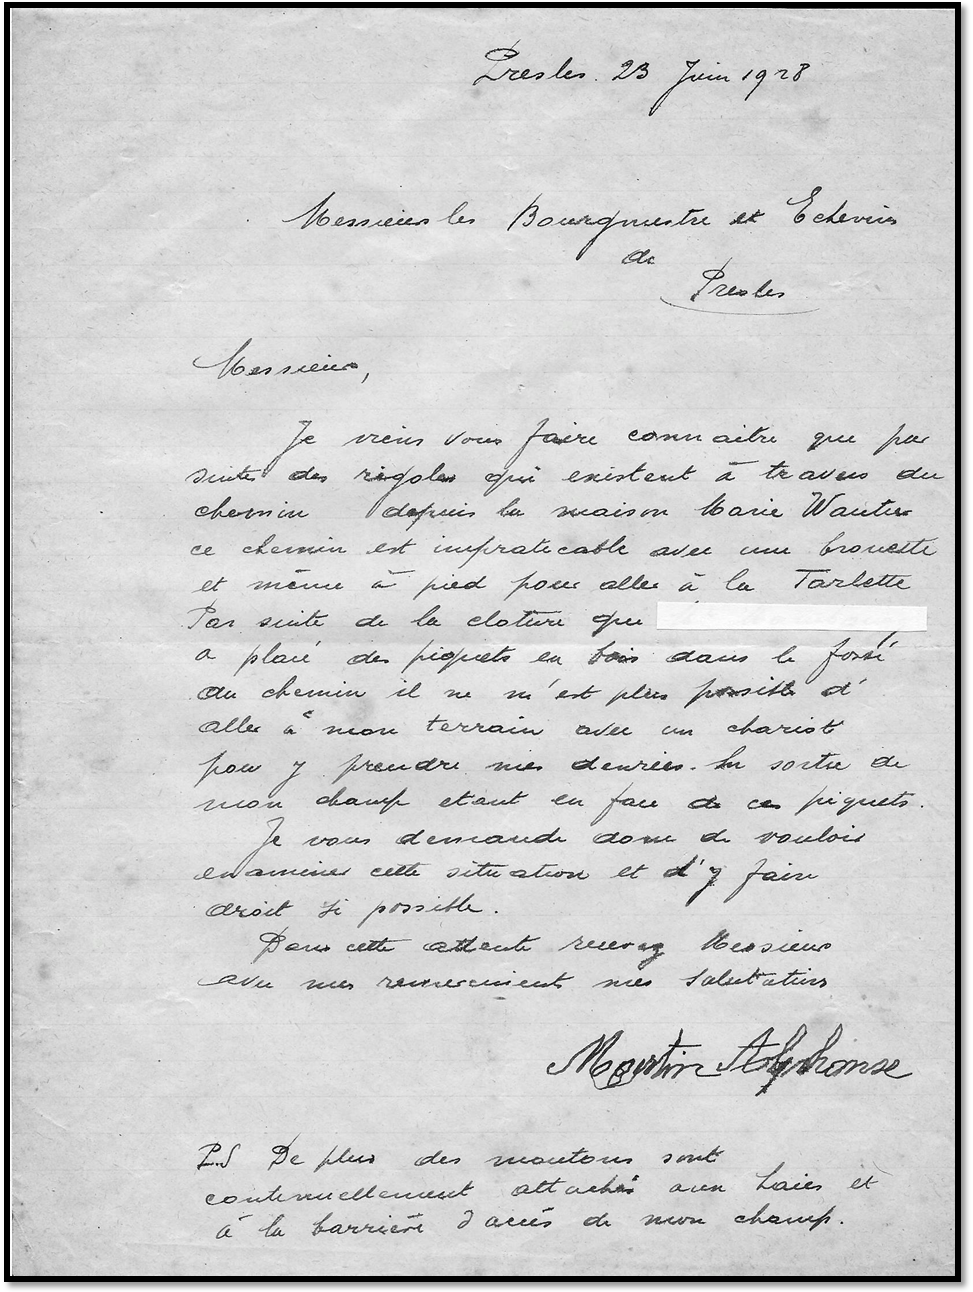 Presles. 23 Juin 1928
Messieurs les Bourgmestre et Echevins
de
Presles
Messieurs,
Je viens vous faire connaitre que par
suite des rigoles qui existent à travers du
chemin depuis la maison Marie Wautier
ce chemin est impraticable avec une brouette
et même à pied pour aller à la Tarlette
Par suite de la cloture que
a placé des piquets en bois dans le fossé
du chemin il ne m'est plus possible d'
aller à mon terrain avec un chariot
pour y prendre mes denrées. La sortie de
mon champ etant en face de ces piquets.
Je vous demande donc de vouloir
examiner cette situation et d'y faire
droit si possible.
Dans cette attente recevez Messieurs
avec mes remerciments mes Salutations
Martin Alphonse
P.S De plus des moutons sont
continuellement attachés aux haies et
à la barrière d'accés de mon champ.